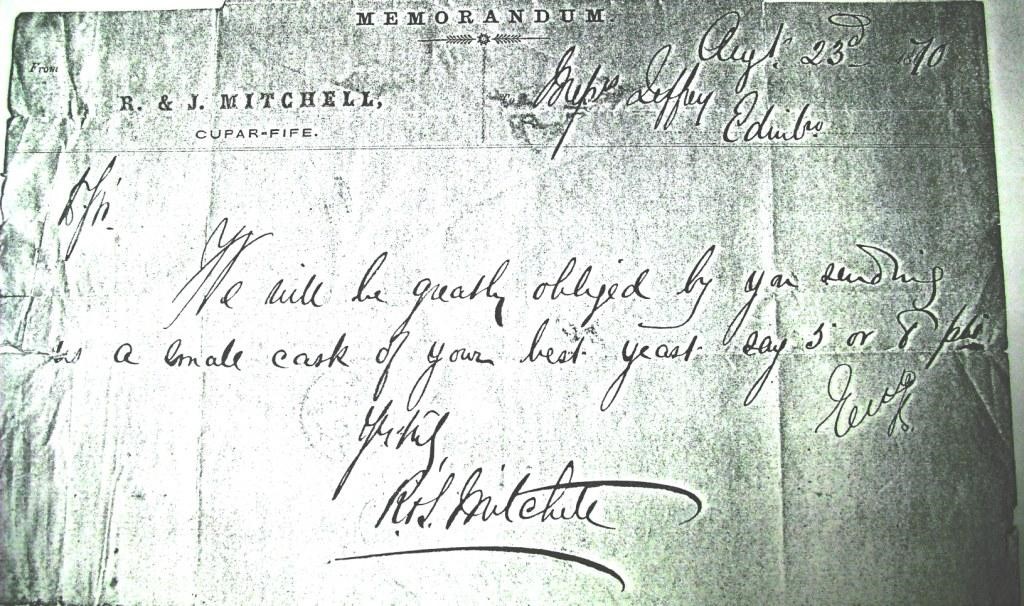 MEMORANDUM.
Augt. 23d 1870
From
Messrs Jeffrey
R. & J. MITCHELL,
Edinbro
CUPAR-FIFE.
We will be greatly obliged by you sending
us a small cask of your best yeast say 5 or 8
R & J. Mitchell